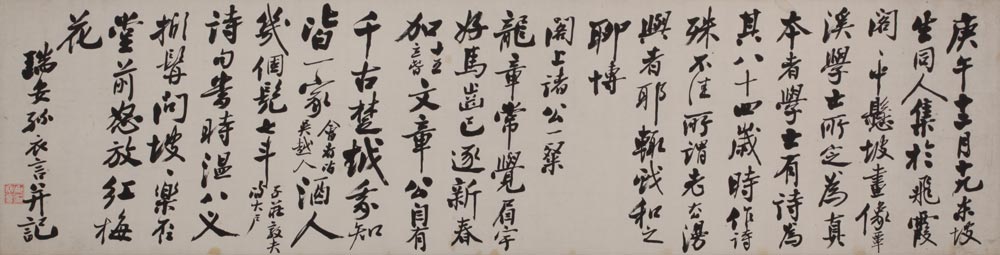 庚午十二月十九東坡
生同人集於飛霞
閣、中懸坡畫像覃
溪學士所定為真
本者學士有詩為
其八十四歲時作詩
殊不佳所謂老去漫
與者耶輒戲和之
聊博
閣上諸公一粲
龍章常覺眉宇
好馬齒已逐新春
加十五立春文章公自有
千古楚越我知
皆一家會者皆吳越人酒人
幾個髡七斗子莊敦夫皆大戶
詩句時溫八叉
掀髯問坡、樂否
堂前怒放紅梅
花
瑞安孫衣言并記